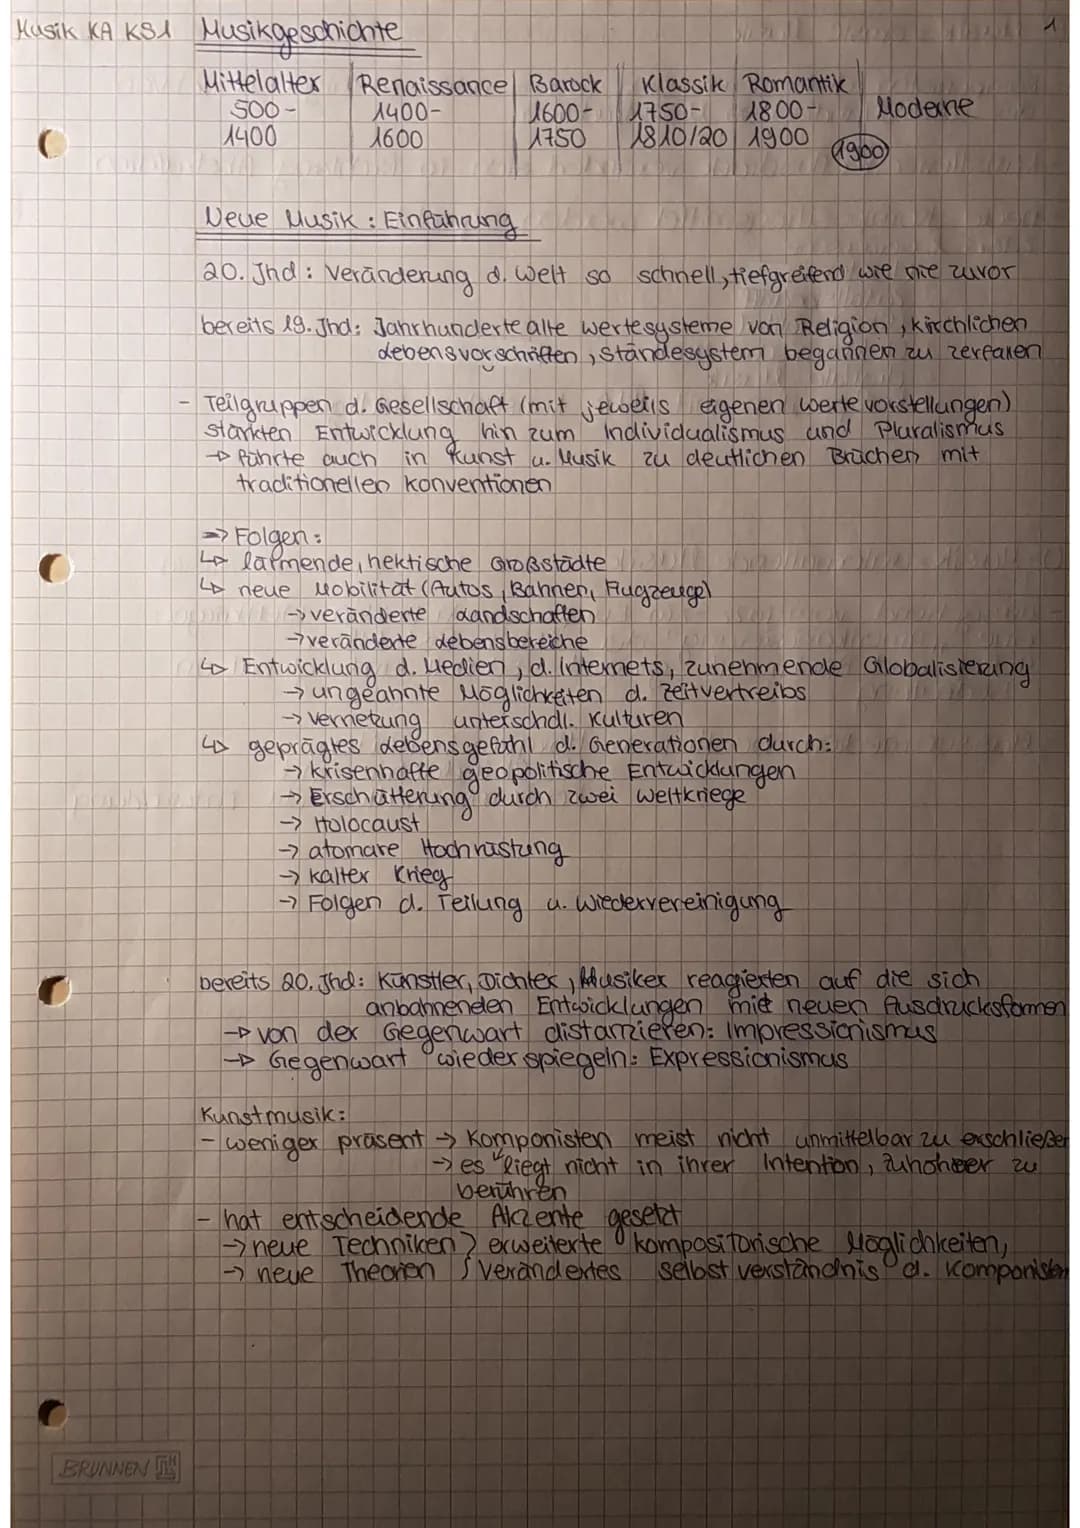 Musik KA KS1 Musikgeschichte 1
Mittelalter Renaissance Barock Klassik Romantik
500- 1400- 1600- 1750- 1800- Moderne
1400 1600 1750 1810/20 1900 1900
Neue Musik : Einführung
20. Jhd : Veränderung d. Welt so schnell, tiefgreifend wie nie zuvor
bereits 19. Jhd: Jahrhunderte alte Wertesysteme von Religion, kirchlichen
Lebensvorschriften, Ständesystem begannen zu zerfallen
- Teilgruppen d. Gesellschaft (mit jeweils eigenen Wertevorstellungen)
stärkten Entwicklung hin zum Individualismus und Pluralismus
→ führte auch in Kunst u. Musik zu deutlichen Brüchen mit
traditionellen Konventionen
⇒ Folgen:
↳ lärmende, hektische Großstädte
↳ neue Mobilität (Autos, Bahnen, Flugzeuge)
→ veränderte Landschaften
→ veränderte Lebensbereiche
↳ Entwicklung d. Medien, d. Internets, zunehmende Globalisierung
→ ungeahnte Möglichkeiten d. Zeitvertreibs
→ Vernetzung unterschdl. Kulturen
↳ geprägtes Lebensgefühl d. Generationen durch:
→ krisenhafte geopolitische Entwicklungen
→ Erschütterung durch zwei Weltkriege
→ Holocaust
→ atomare Hochrüstung
→ kalter Krieg
→ Folgen d. Teilung u. Wiedervereinigung
bereits 20. Jhd: Künstler, Dichter, Musiker reagierten auf die sich
anbahnenden Entwicklungen mit neuen Ausdrucksformen
→ von der Gegenwart distanzieren: Impressionismus
→ Gegenwart wiederspiegeln: Expressionismus
Kunstmusik:
- weniger präsent → Komponisten meist nicht unmittelbar zu erschließen
→ es liegt nicht in ihrer Intention, Zuhöhrer zu
berühren
- hat entscheidende Akzente gesetzt
→ neue Techniken } erweiterte kompositorische Möglichkeiten,
→ neue Theorien } verändertes Selbstverständnis d. Komponisten
BRUNNEN